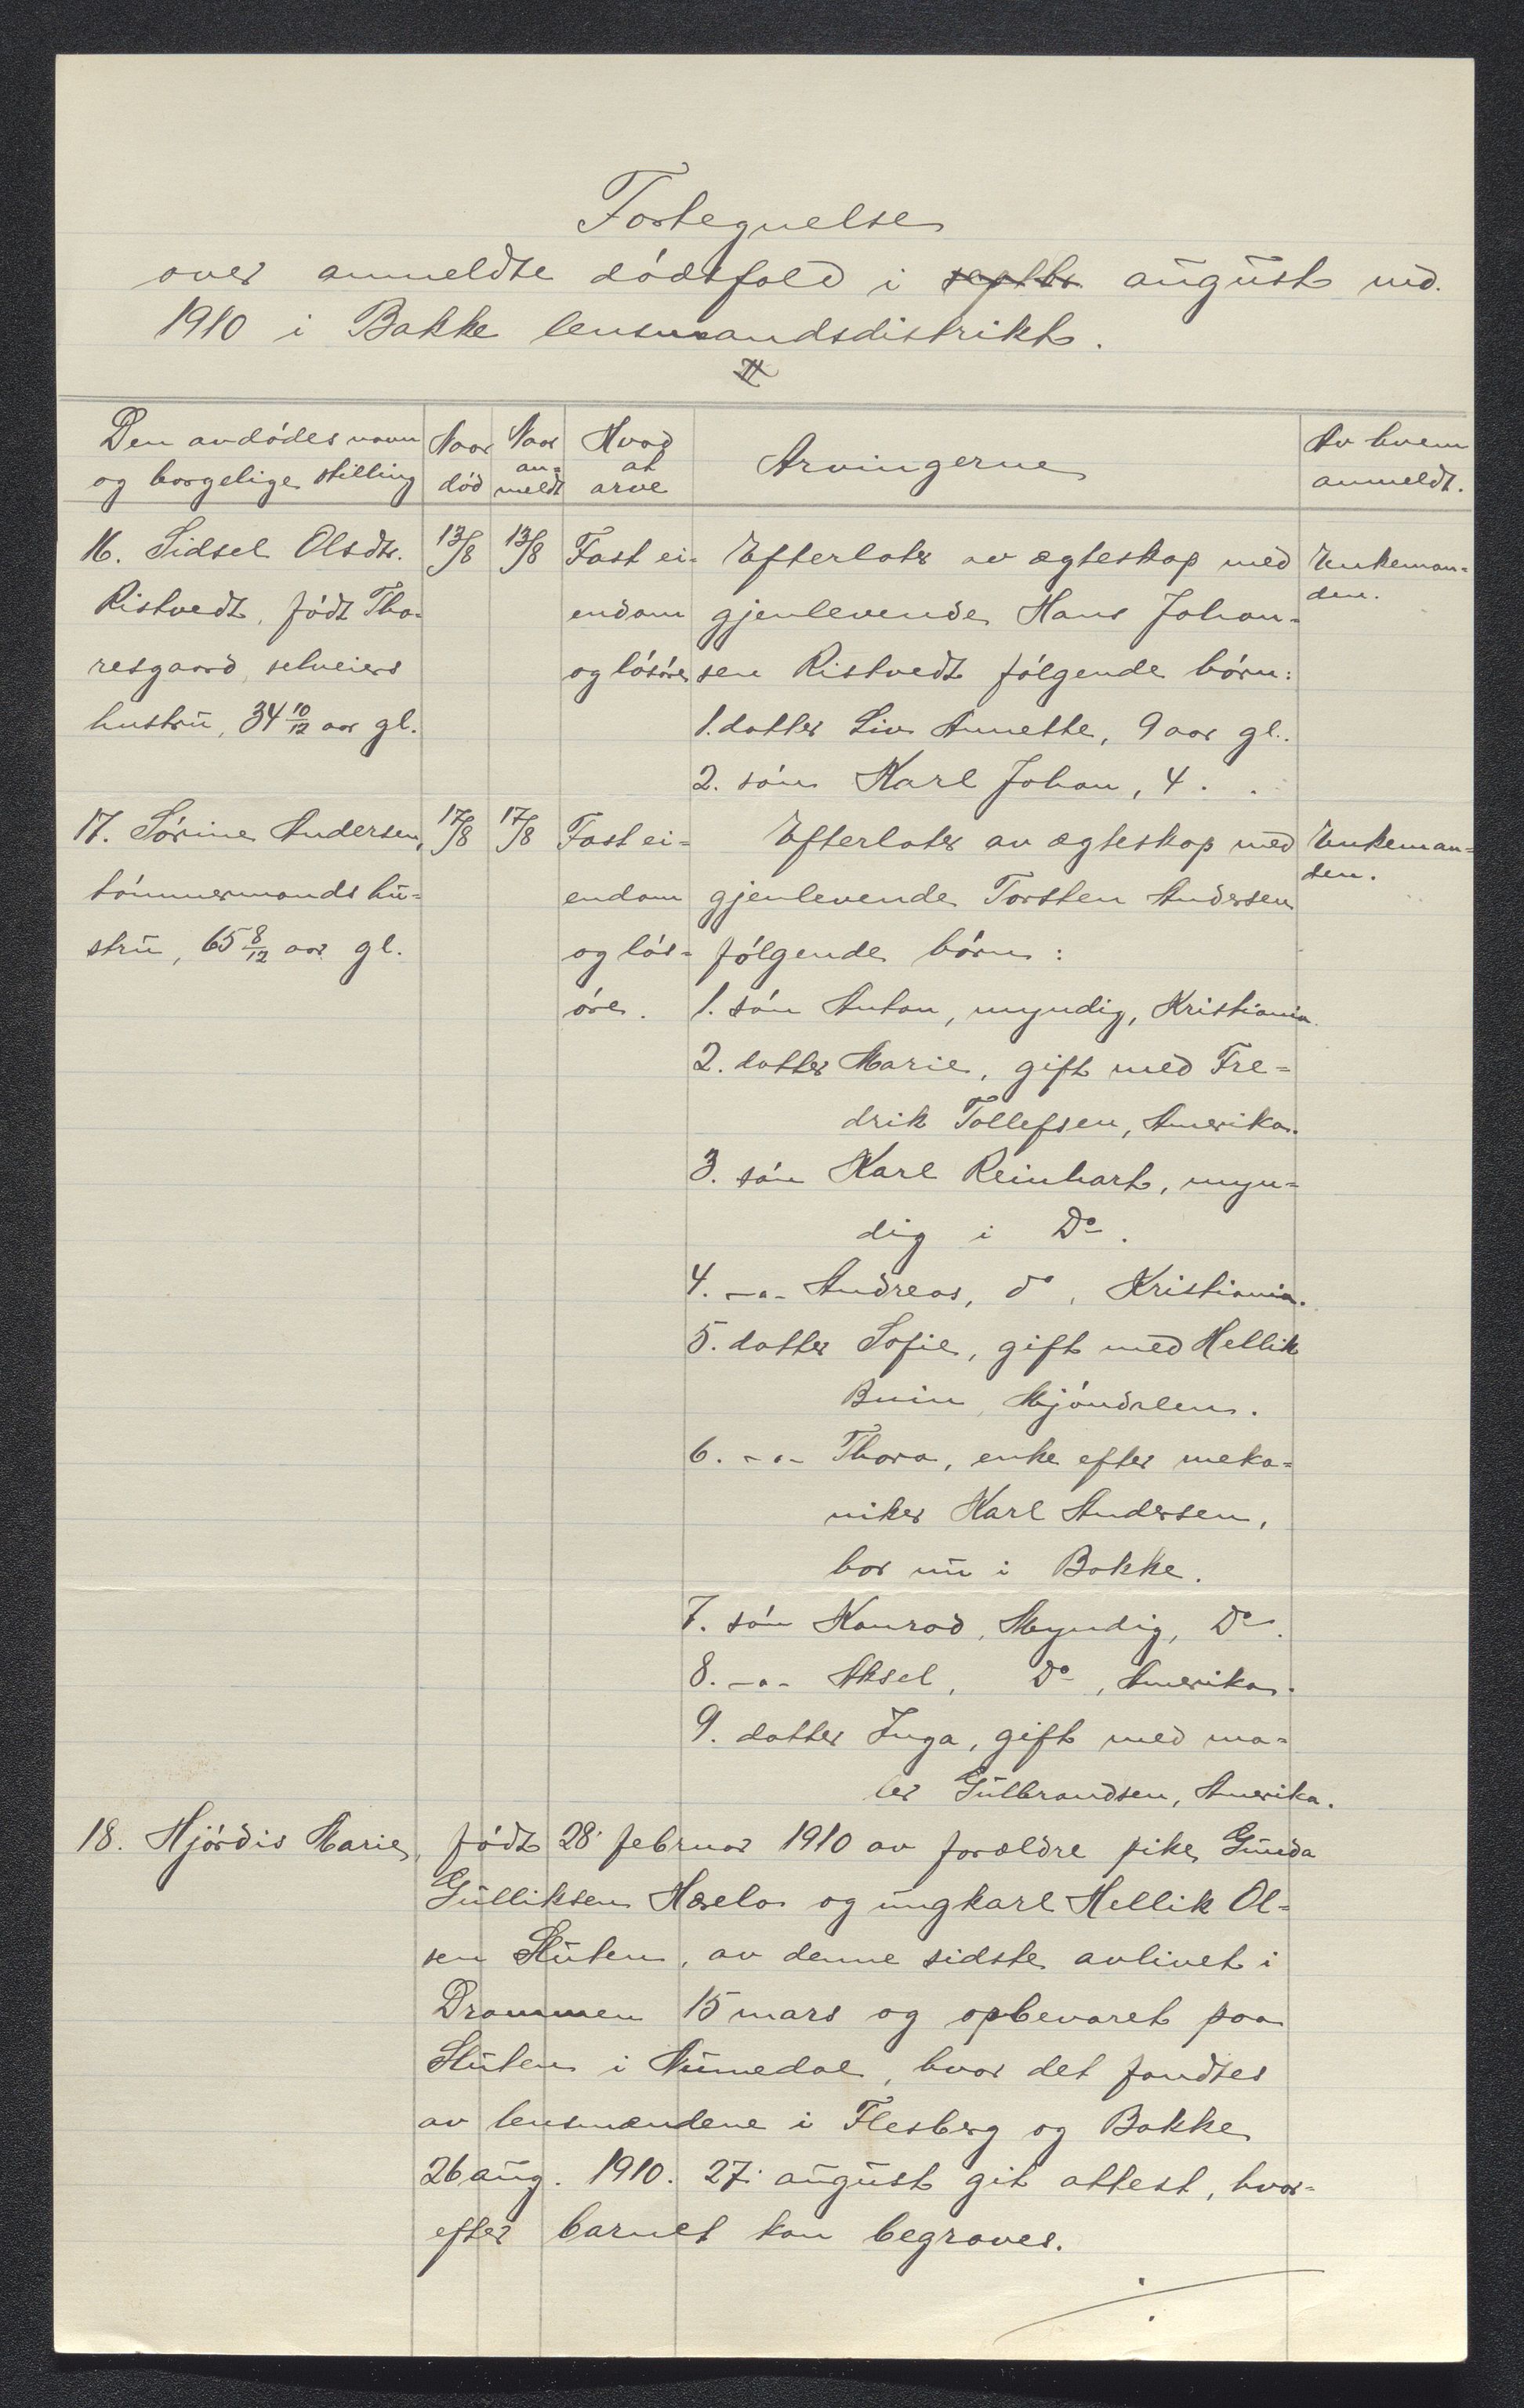 Fortegnelse
over anmeldte dødsfald i septbr august md.
1910 i Bakke lensmandsdistrikt.
Den avdødes navn og borgelige stilling | Naar død | Naar an= meldt | Hvad at arve | Arvingerne | Av hvem anmeldt.
16. Sidsel Olsdtr. | 13/8 | 13/8 | Fast ei- | Efterlater av ægteskap med | Enkeman=
Ristvedt, født Tho- | endom | gjenlevende Hans Johan- | den.
resgaard, selveiers | og løsøre | sen Ristvedt følgende børn:
hustru, 34 10/12 aar gl. | 1. datter Liv Annette, 9 aar gl.
2. søn Karl Johan, 4 . .
17. Sørine Andersen, | 17/8 | 17/8 | Fast ei= | Efterlater av ægteskap med | Enkeman=
tømmermands hu= | endom | gjenlevende Torsten Andersen | den.
stru, 65 8/12 aar gl. | og løs= | følgende børn:
øre. | 1. søn Anton, myndig, Kristiania.
2. datter Marie, gift med Fre=
drik Tollefsen, Amerika.
3. søn Karl Reinhart, myn=
dig i Do.
4. -"- Andreas, do, Kristiania.
5. datter Sofie, gift med Hellik
Bruin, Mjøndalen.
6. -"- Thora, enke efter meka=
niker Karl Andersen,
bor nu i Bakke.
7. søn Konrad, Myndig, Do.
8. -"- Aksel, Do, Amerika.
9. datter Inga, gift med ma=
ler Gulbrandsen, Amerika.
18. Hjørdis Marie, født 28. februar 1910 av forældre pike Gunda
Gulliksen Hæela og ungkarl Hellik Ol=
sen Sluten, av denne sidste avlivet i
Drammen 15 mars og opbevaret paa
Sluten i Numedal, hvor det fandtes
av lensmændene i Flesberg og Bakke
26 aug. 1910. 27. august git attest, hvor=
efter barnet kan begraves.